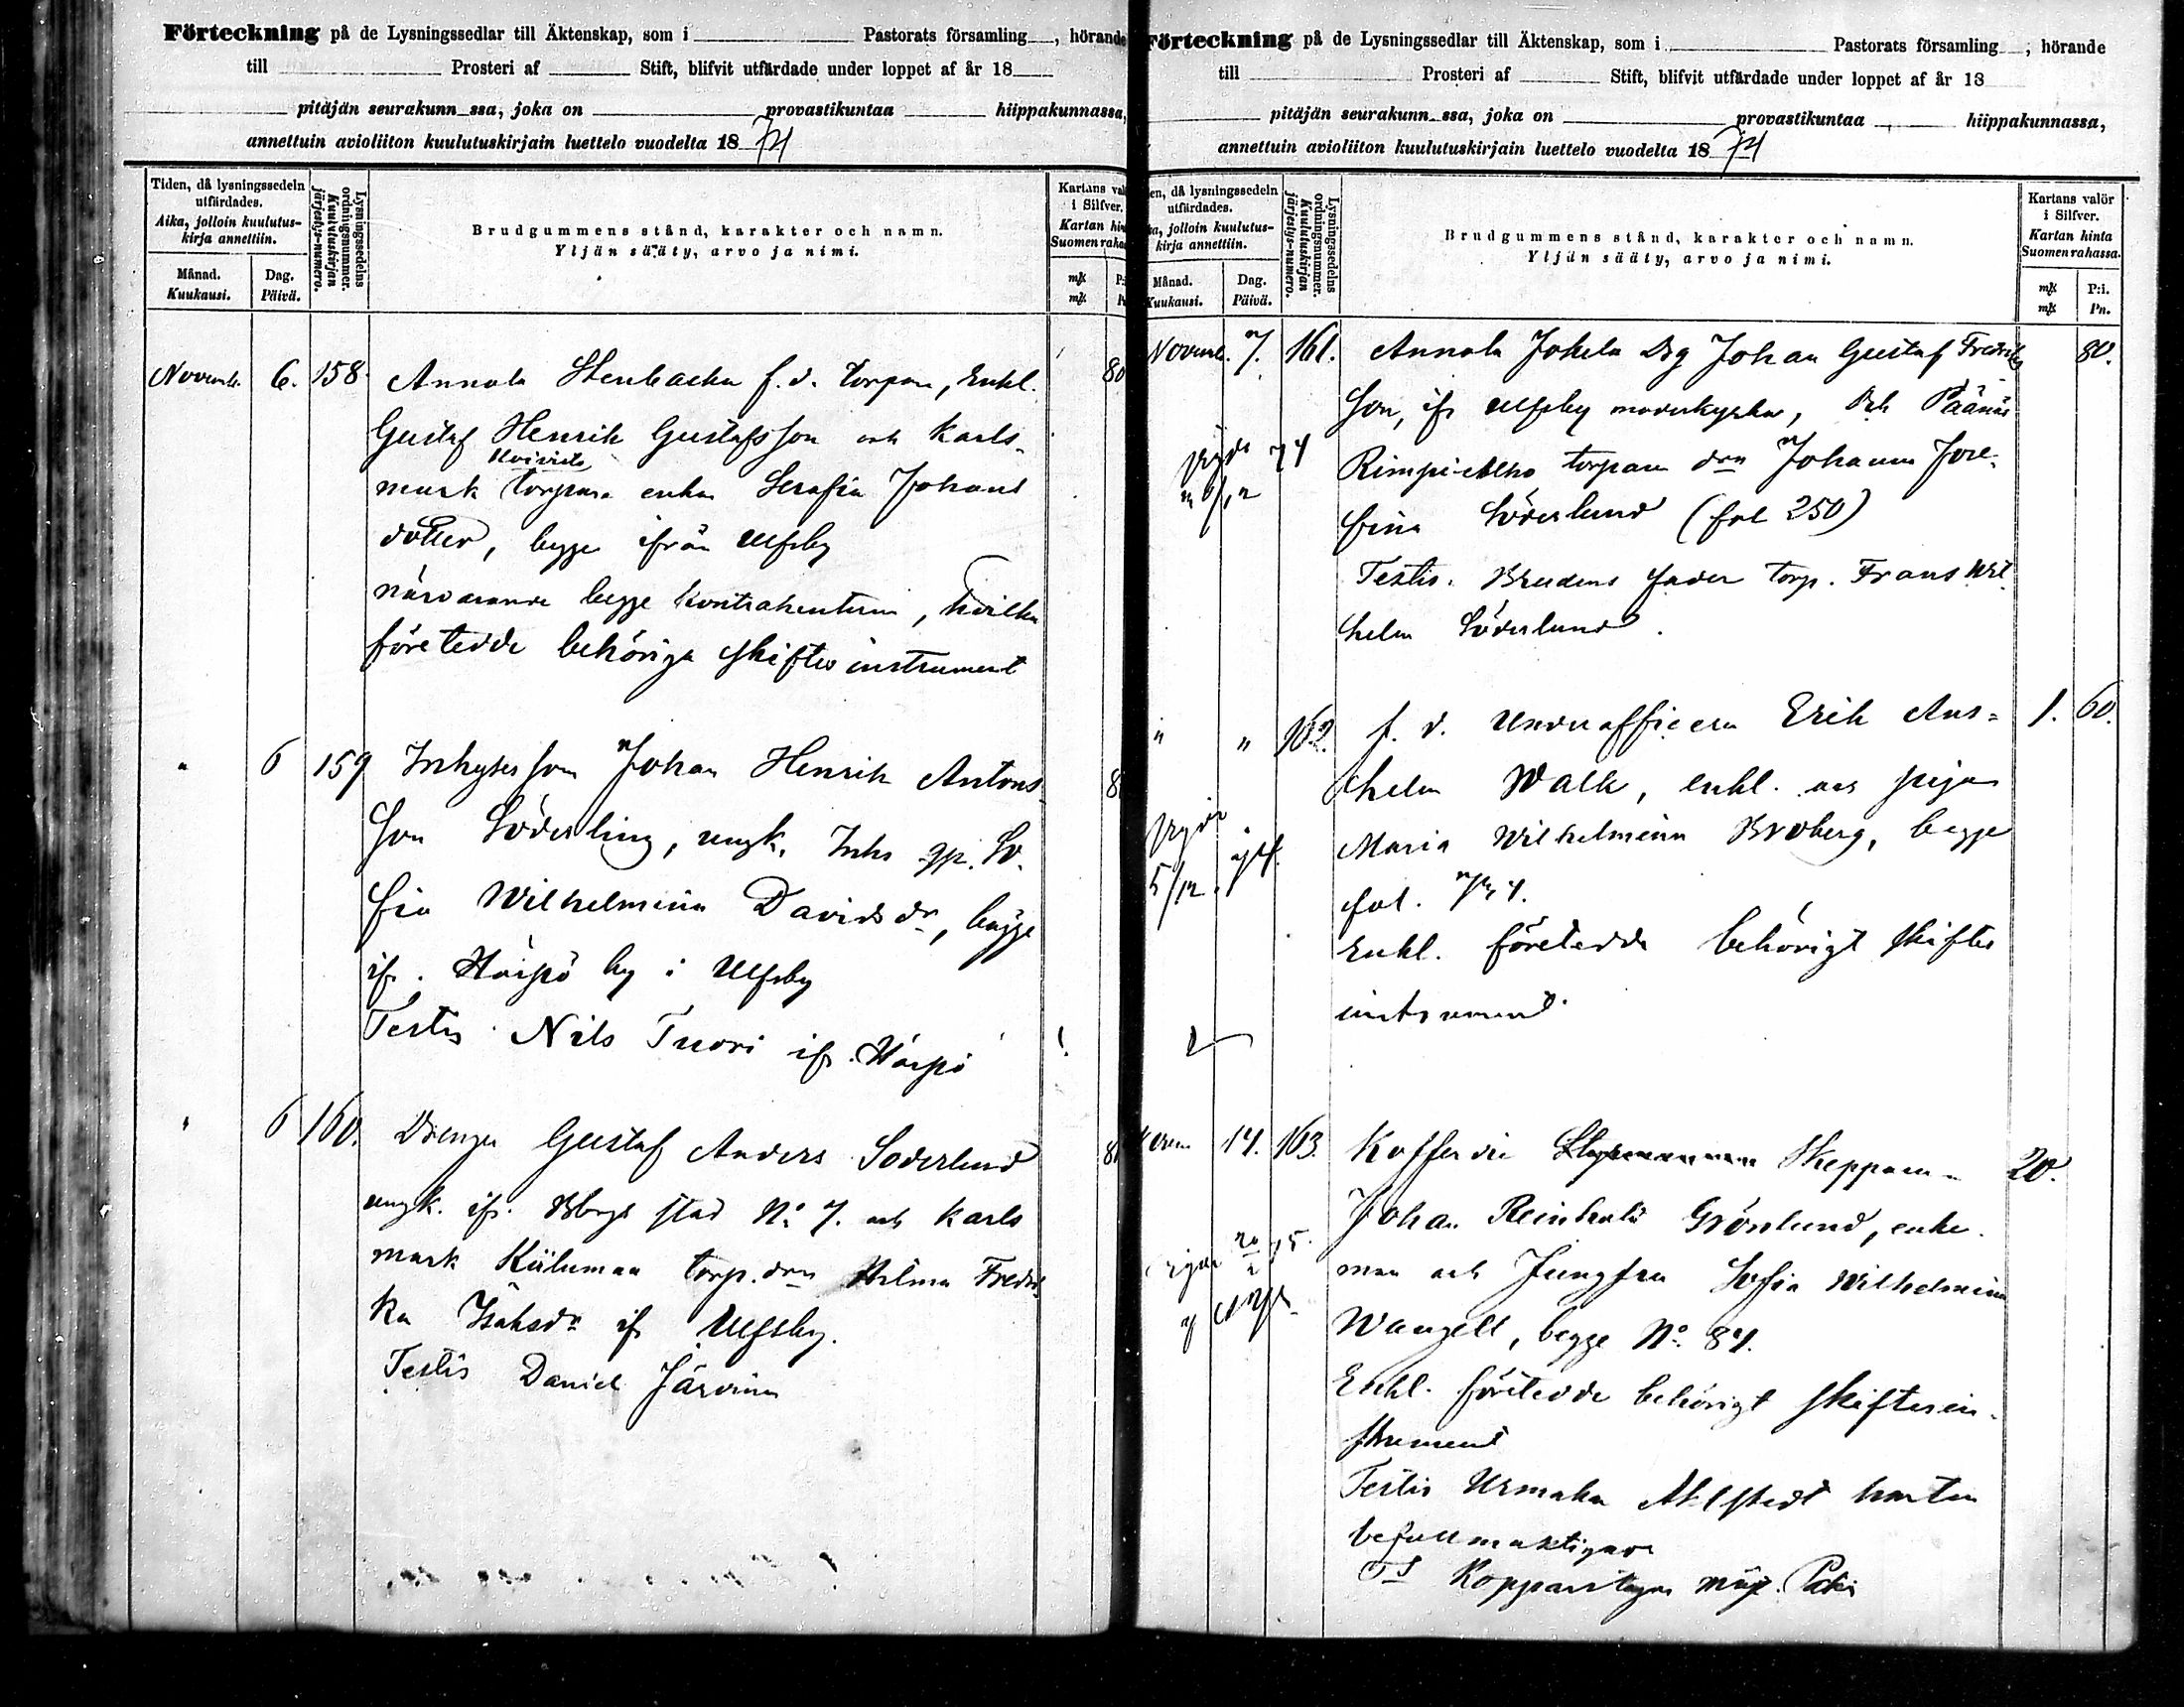 Förteckning på de Lysningssedlar till Äktenskap, som i Pastorats församling , hörande
till Prosteri af Stift, blifvit utfärdade under loppet af år 18
pitäjän seurakunn ssa, joka on provastikuntaa hiippakunnassa,
annettuin avioliiton kuulutuskirjain luettelo vuodelta 1874
Tiden, då lysningssedeln utfärdades.
Aika, jolloin kuulutus-
kirja annettiin.
Månad.
Kuukausi.
Dag.
Päivä.
Lysningssedelns
ordningsnummer.
Kuulutuskirjan
järjestys-numero.
Brudgummens stånd, karakter och namn.
Yljän sääty, arvo ja nimi.
Kartans val
i Silfver.
Kartan hin
Suomen raha
mk P:
mk P
Novemb. 6. 158. Annala Stenbacka f.d. torpare, Enkl. 80
Gustaf Henrik Gustafsson och Karls-
Koivisto
mark torpare enkan Serafia Johans
dotter, begge ifrån Ulfsby
närvarande begge kontrahenterne, hvilka
företedde behöriga skiftes instrument
" 6 159 Inhyses son Johan Henrik Antons- 8
son Söderling, ungk. Inhs gp. So-
fia Wilhelmina Davidsdr, begge
ifr. Harjö by i Ulfsby
Testis Nils Tuori ifr. Harjö
" 6 160. Drengen Gustaf Anders Soderlund 8
ungk. ifr. Bbrgs stad No 7. och Karls
mark Kiiluman torp.drn Hilma Fredri-
ka Isaksdr ifr Ulfsby.
Testis Daniel Järvinen
Förteckning på de Lysningssedlar till Äktenskap, som i Pastorats församling , hörande
till Prosteri af Stift, blifvit utfärdade under loppet af år 18
pitäjän seurakunn ssa, joka on provastikuntaa hiippakunnassa,
annettuin avioliiton kuulutuskirjain luettelo vuodelta 1874
en, då lysningssedeln
utfärdades.
ka, jolloin kuulutus-
kirja annettiin.
Månad.
Kuukausi.
Dag.
Päivä.
Lysningssedelns
ordningsnummer.
Kuulutuskirjan
järjestys-numero.
Brudgummens stånd, karakter och namn.
Yljän sääty, arvo ja nimi.
Kartans valör
i Silfver.
Kartan hinta
Suomen rahassa.
mk P:i.
mk Pn.
Novemb. 7. 161. Annala Jokela Dg Johan Gustaf Fredriks 80.
son, ifr Ulfsby moderkyrka, och Påänäs
Vigde 74 Rimpi-elho torpare drn Johanna Jose-
fina Söderlund (fol 250)
Testis. Brudens fader torp. Frans Wil
helm Söderlund.
" " 162. f. d. Underofficern Erik Ans- 1. 60.
helm Walk, enkl. och pigan
Vigde Maria Wilhelmina Broberg, begge
5/12 fol.
Enkl. företedde behörigt skiftes
instrument
14. 163. Kofferdie Skepparen 20.
Johan Reinhold Grönlund, enke-
man och Jungfru Sofia Wilhelmina
Wangell, begge No. 84.
Enkl. företedde behörigt skiftesin-
strument
Testis Urmakar Ahlstedt
befullmäktigare